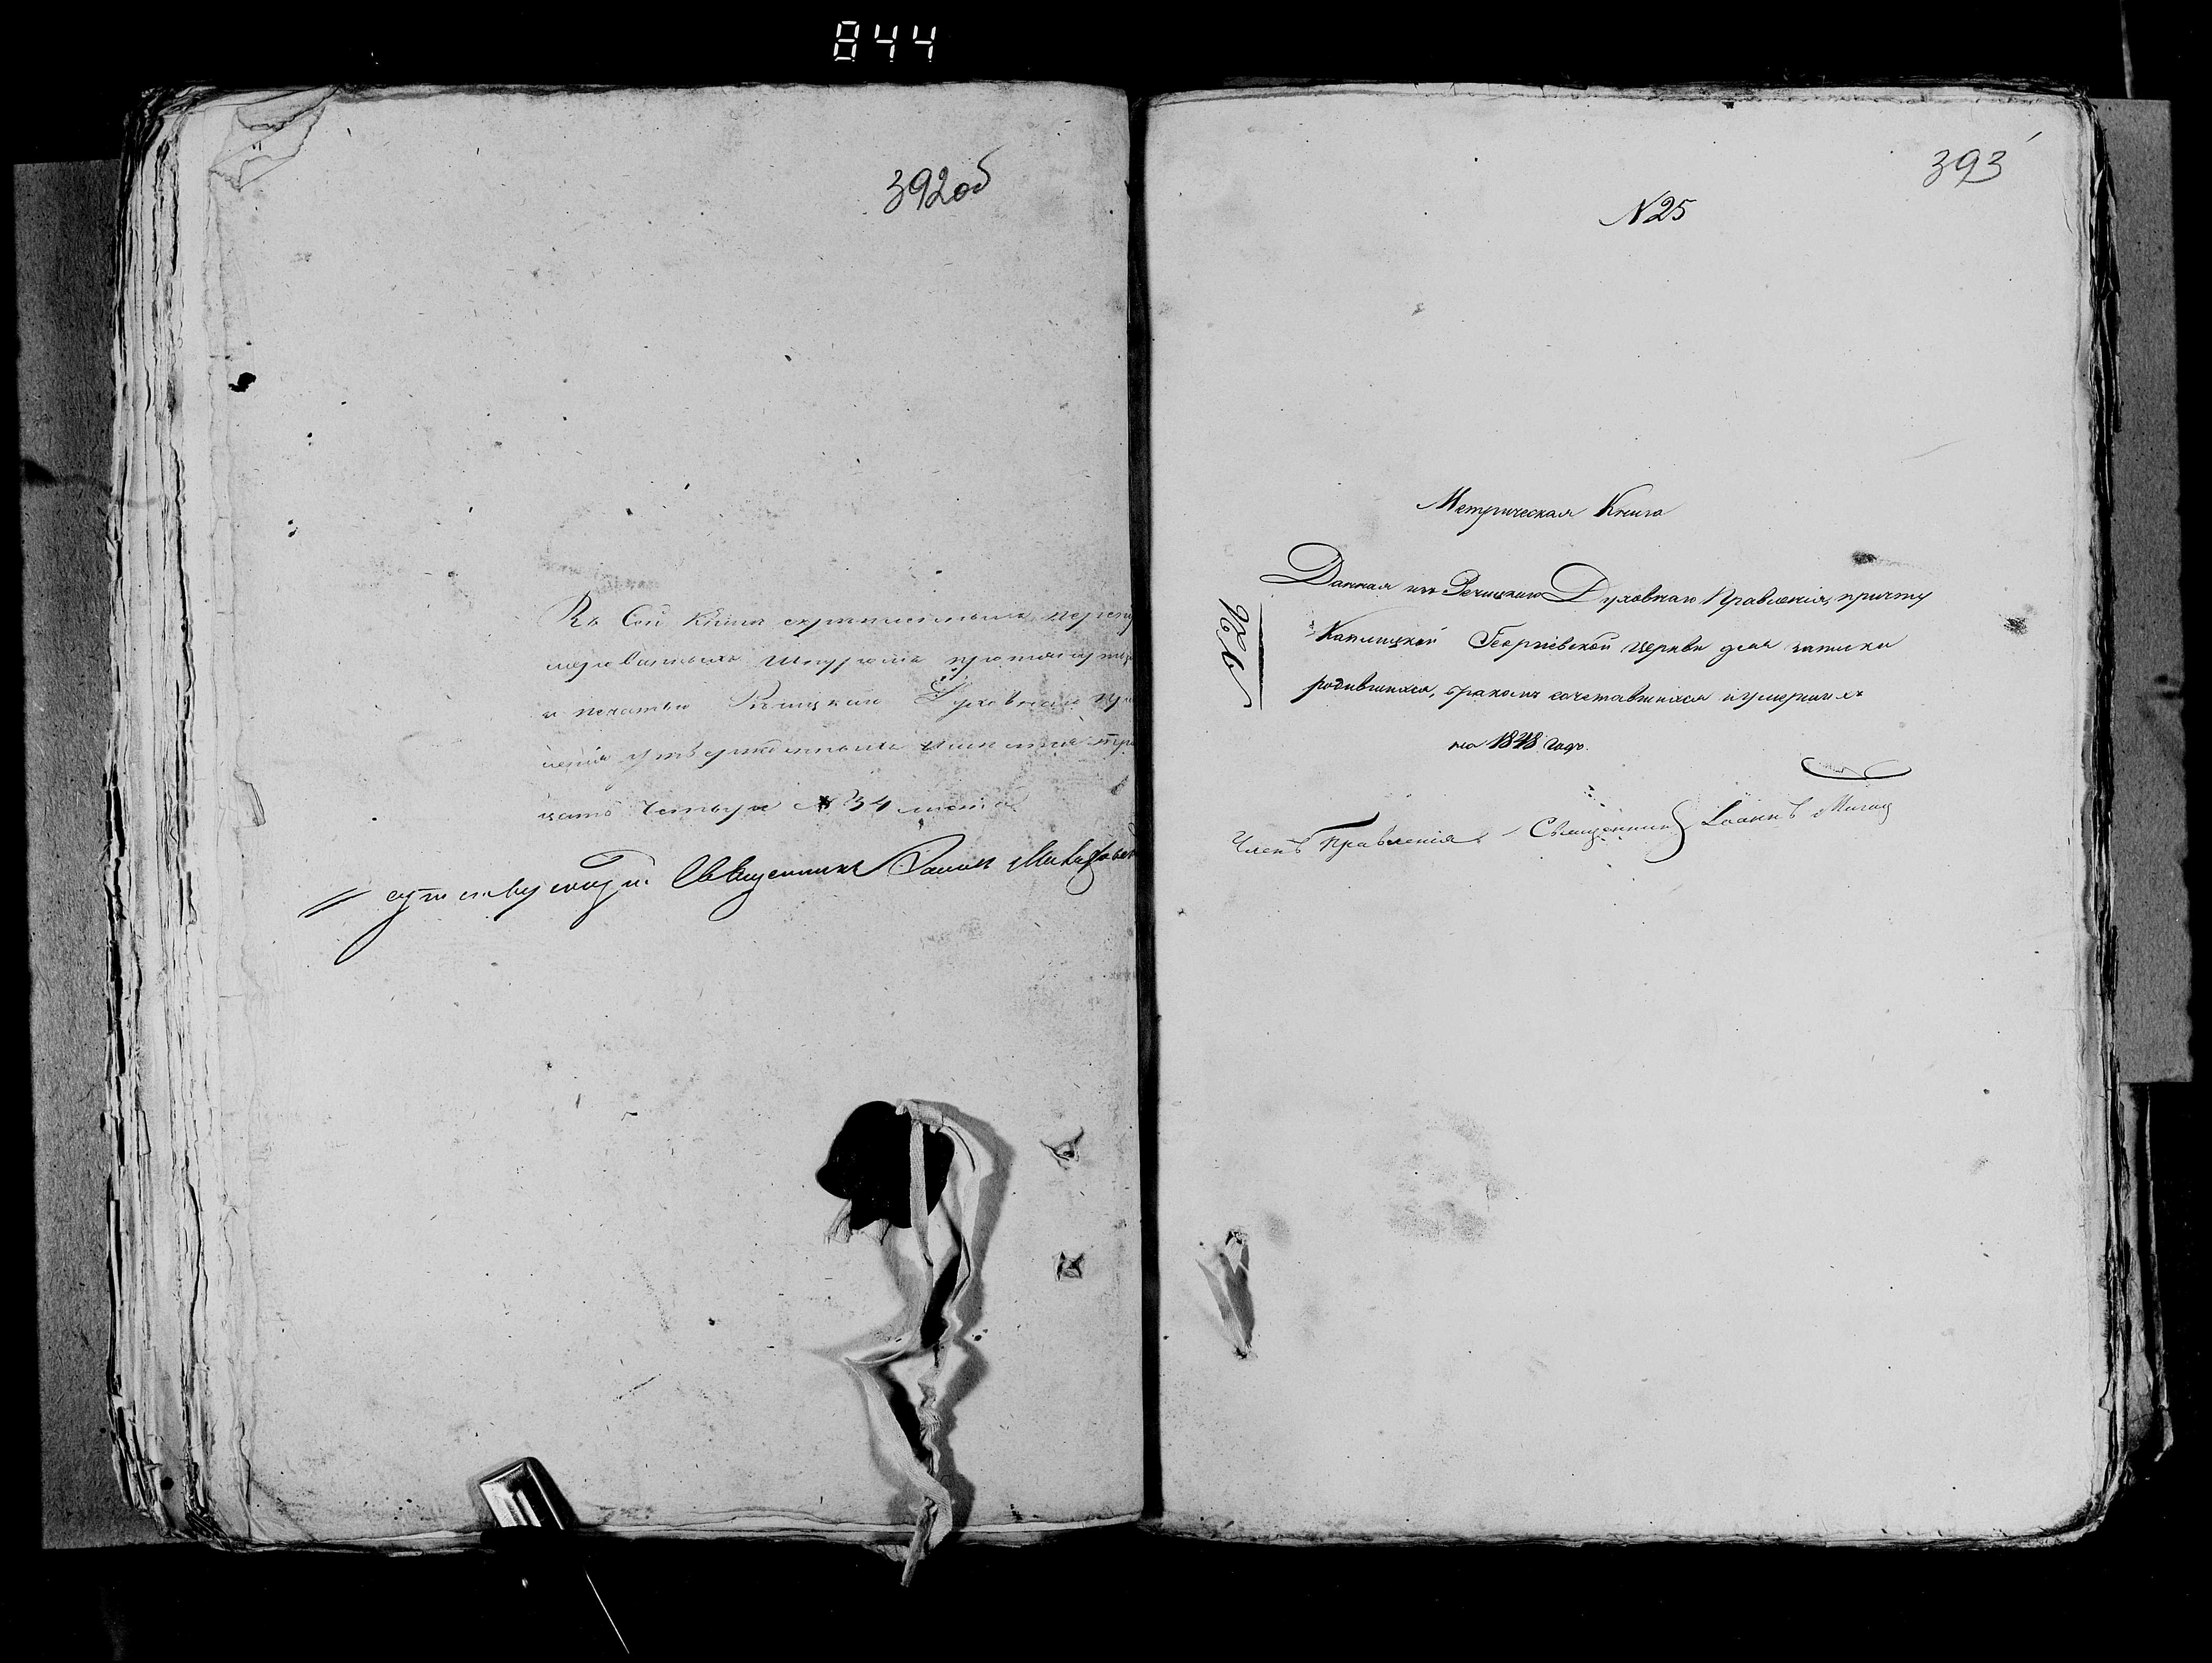 844
392 об
Въ Сей книге скрепленныхъ перену
мерованныхъ шнуромъ протянутыхъ
и печатью Речицкаго Духовнаго Пра
ленія утвержденныхъ листовъ трі
цать четыре № 34 листа
Священникъ
393
N 25
Метрическая Книга
Данная изъ Речицкаго Духовнаго Правленія, причту
Каплицкой Георгіевской церкви для записки
родившихся, бракомъ сочетавшихся и умершихъ
на 1848 годъ.
Членъ Правленія Священникъ Іоаннъ
№ 26